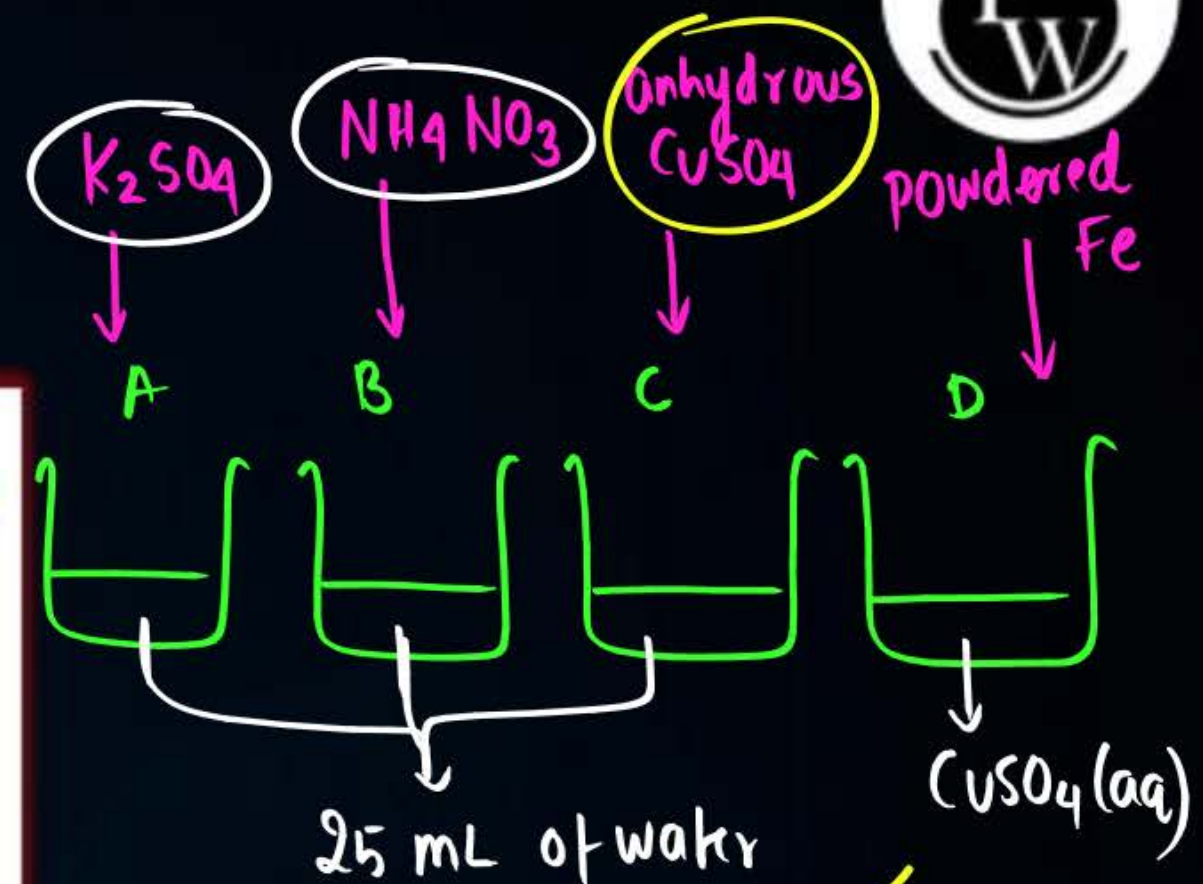 W
K₂SO₄
NH₄ NO₃
anhydrous
CuSO₄
powdered
Fe
A
B
C
D
25 mL of water
CuSO₄ (aq)